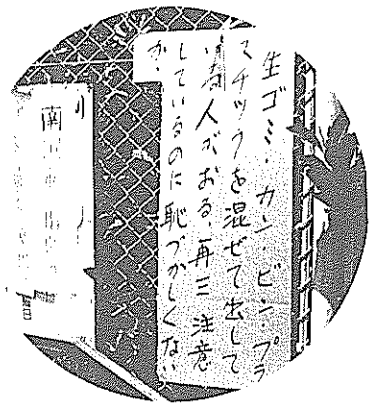 生ゴミ・カン・ビン・プラ
スチックを混ぜて出して
いる人がおる、再三注意
しているのに恥づかしくない
か、
南